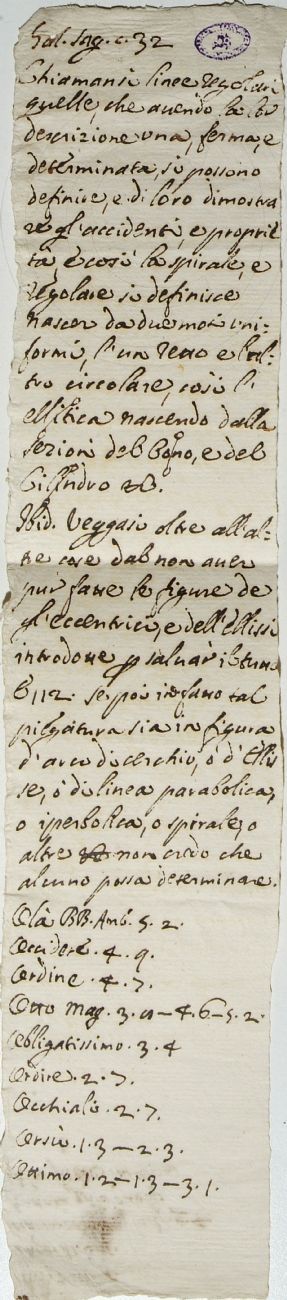 Gal. Sag. c. 32
Chiamansi linee regolari
quelle, che avendo la lor
descrizione una, ferma, e
determinata, si possono
definire, e di loro dimostra
re gl'accidenti, e proprie
tà e così la spirale, e
regolare si definisce
nascer da due moti uni-
formi, l'un retto e l'al-
tro circolare, così l'
ellittica nascendo dalla
sezion del Cono, e del
Cilindro &c.
Ibid. Veggasi oltre all'al-
tre cose dal non aver
pur fatte le figure de
gl'eccentrici, e dell'Ellissi
introdotte p salvar il tutto
112. Se poi in fatto tal
piegatura sia in figura
d'arco di cerchio, o d'Ellis
se, o di linea parabolica,
o iperbolica, o spirale, o
altre non credo che
alcuno possa determinare.
Olà BB. Amb. 5. 2.
Occidere. 4. 9.
Ordine. 4. 7.
Otto Mag. 3. 4. 6 - 5. 2.
Obligatissimo. 3. 4
Ordire. 2. 7.
Occhiali. 2. 7.
Orsù. 1. 3 - 2. 3.
Ottimo. 1. 2 - 1. 3 - 3. 1.